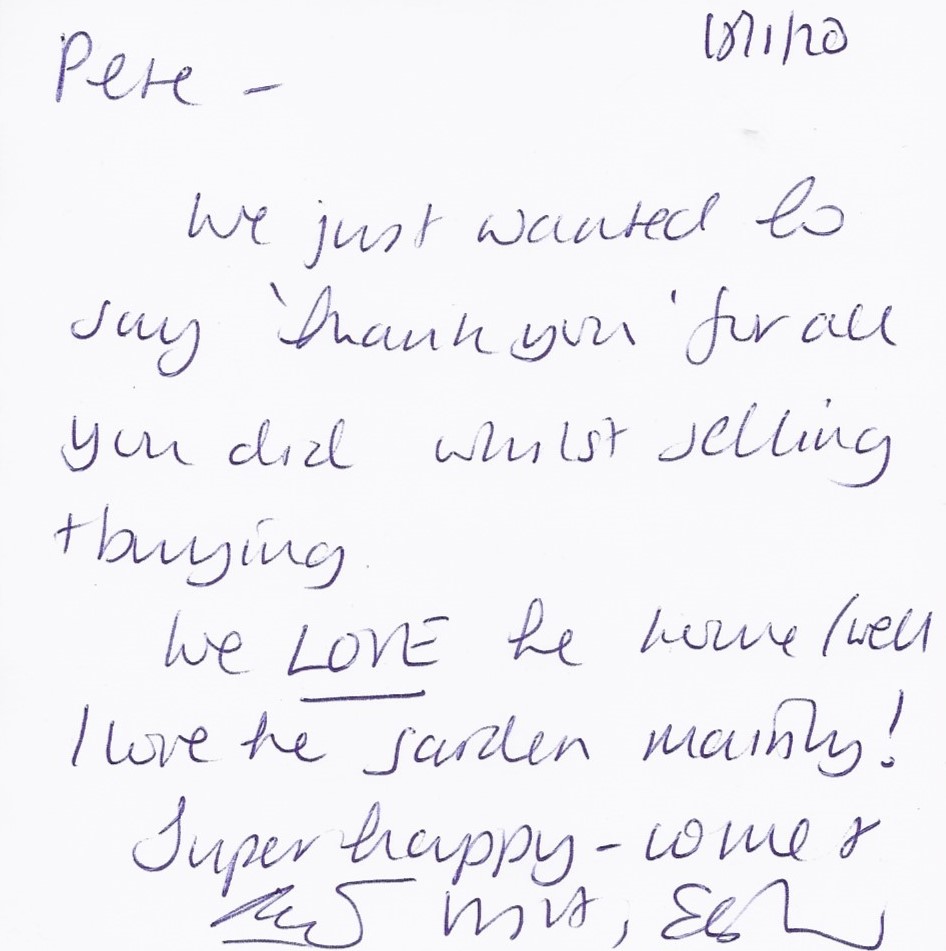 Pete -
We just wanted to
say 'thank you' for all
you did whilst selling
+ buying.
We LOVE the home (well
I love the garden mainly!
Super happy - come &
visit,